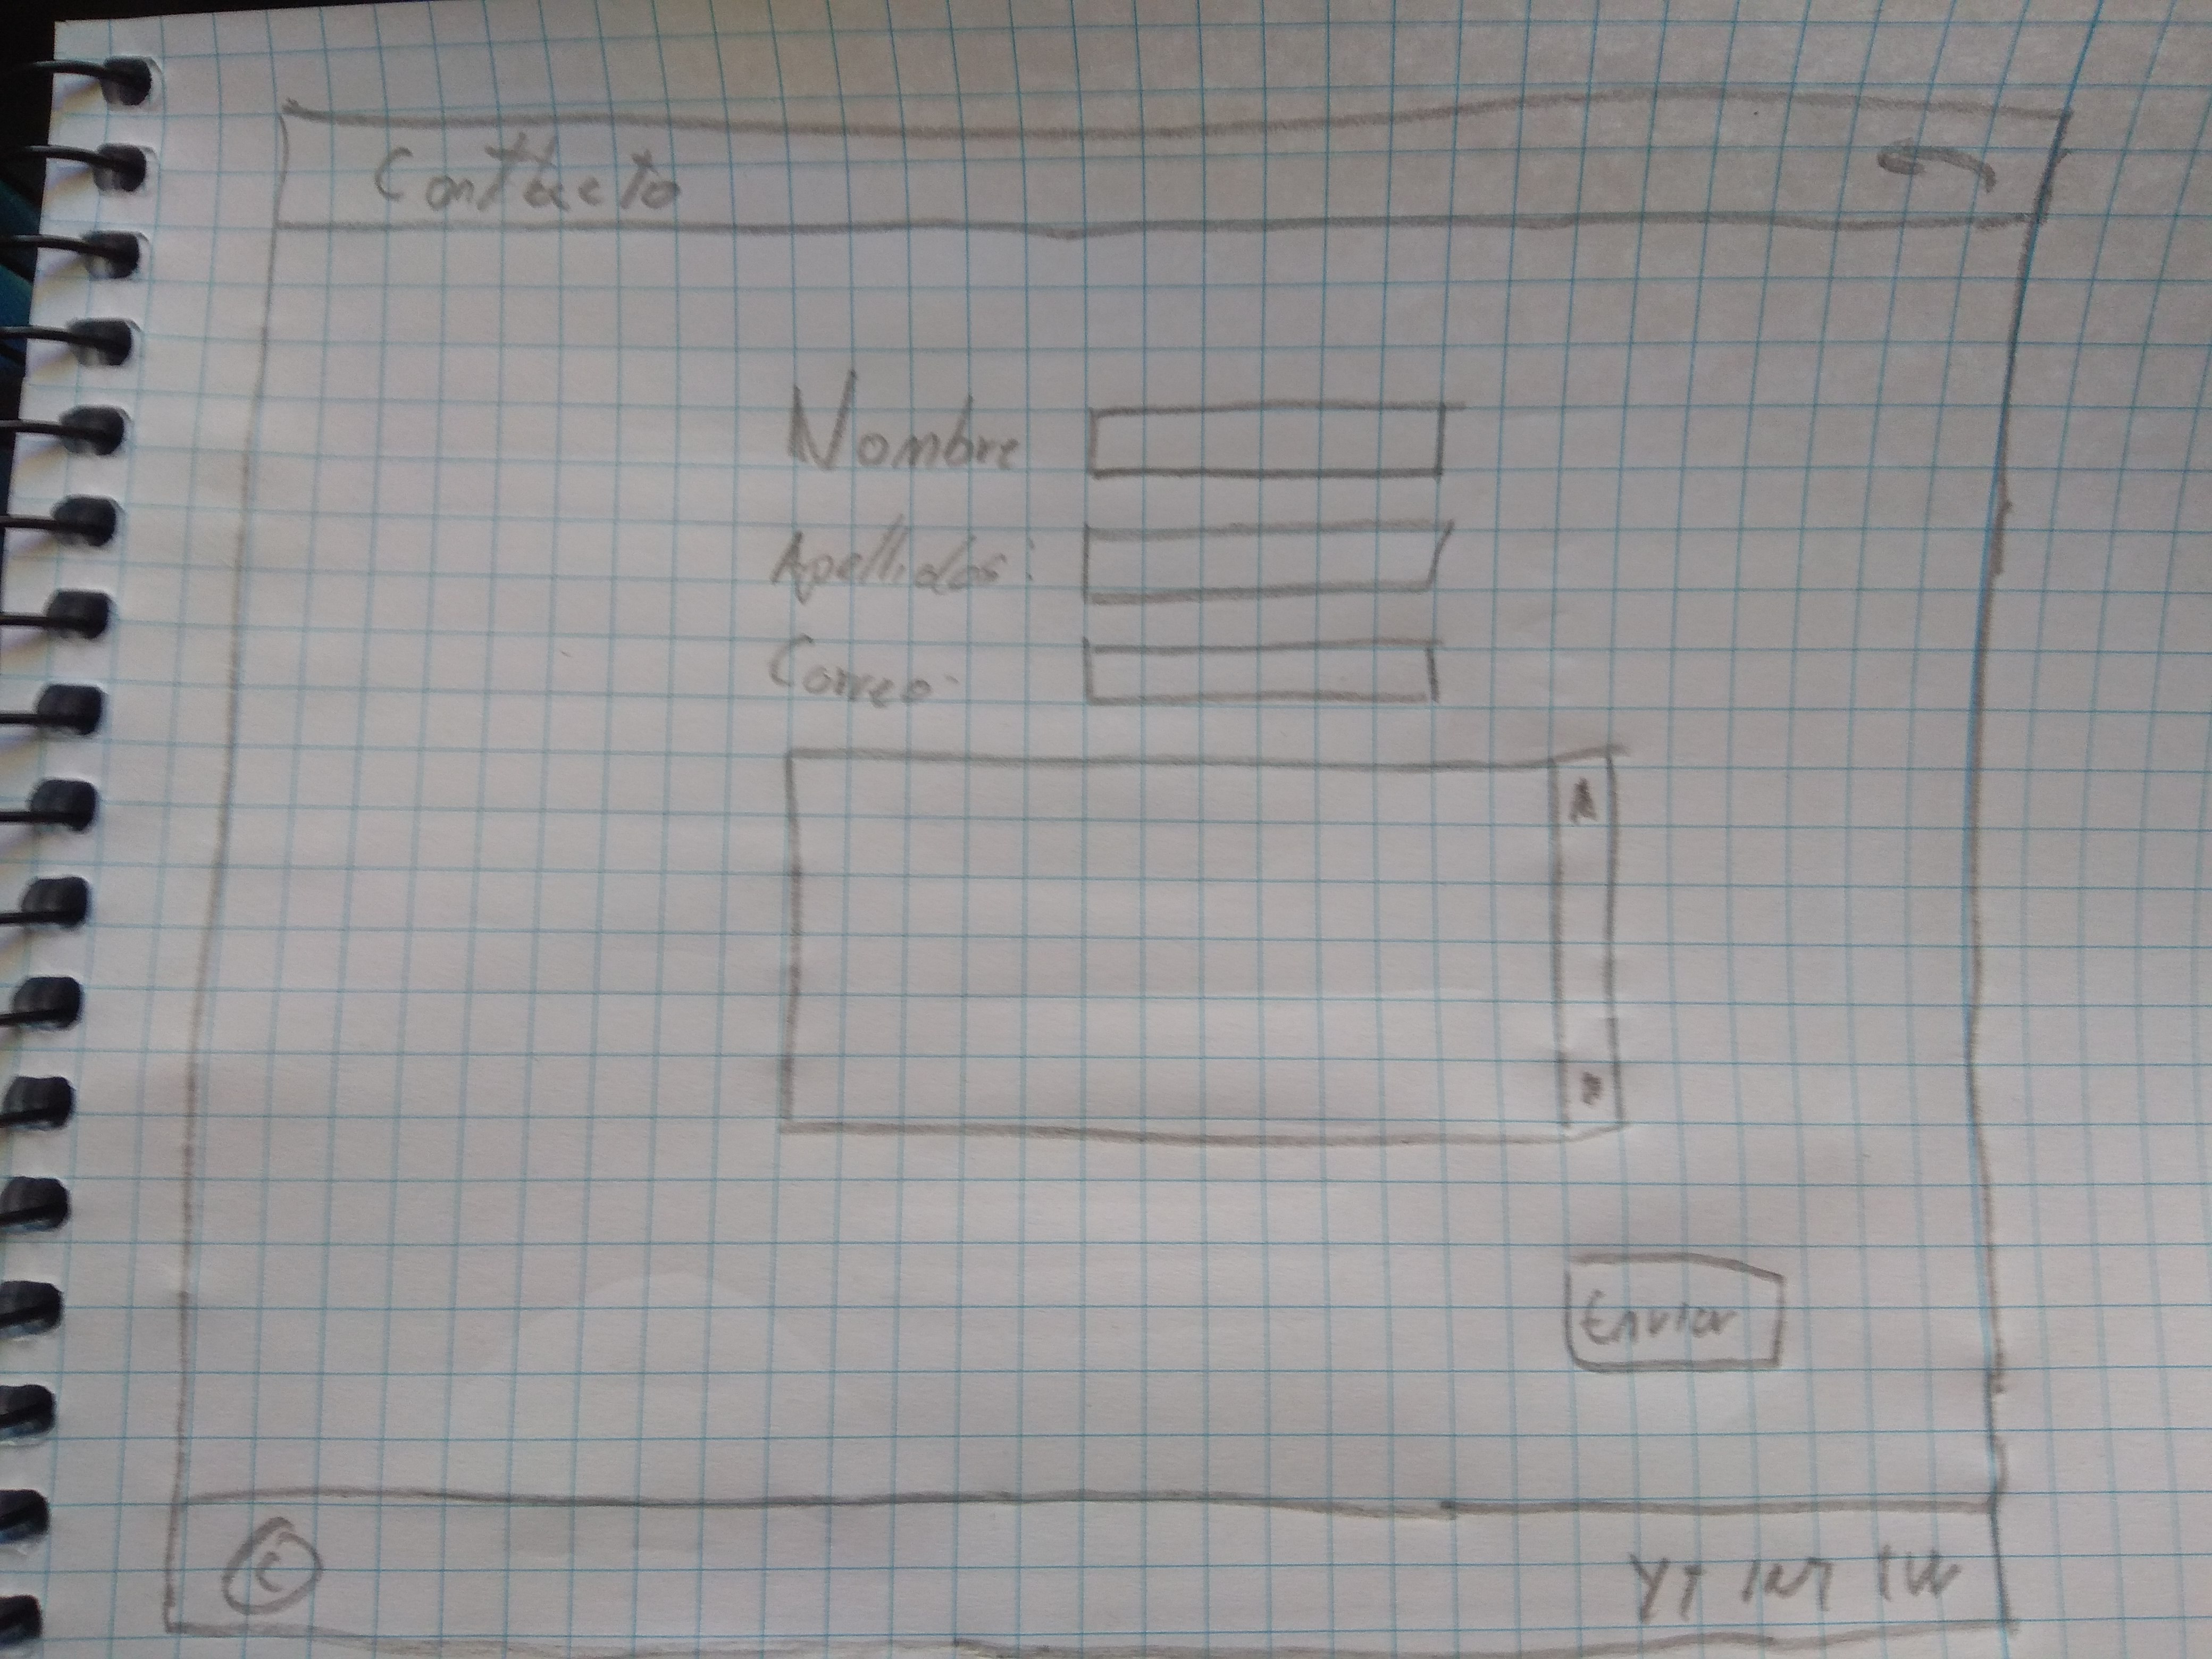 Contacto
Nombre
Apellidos:
Correo:
Enviar
©
YT INT TW